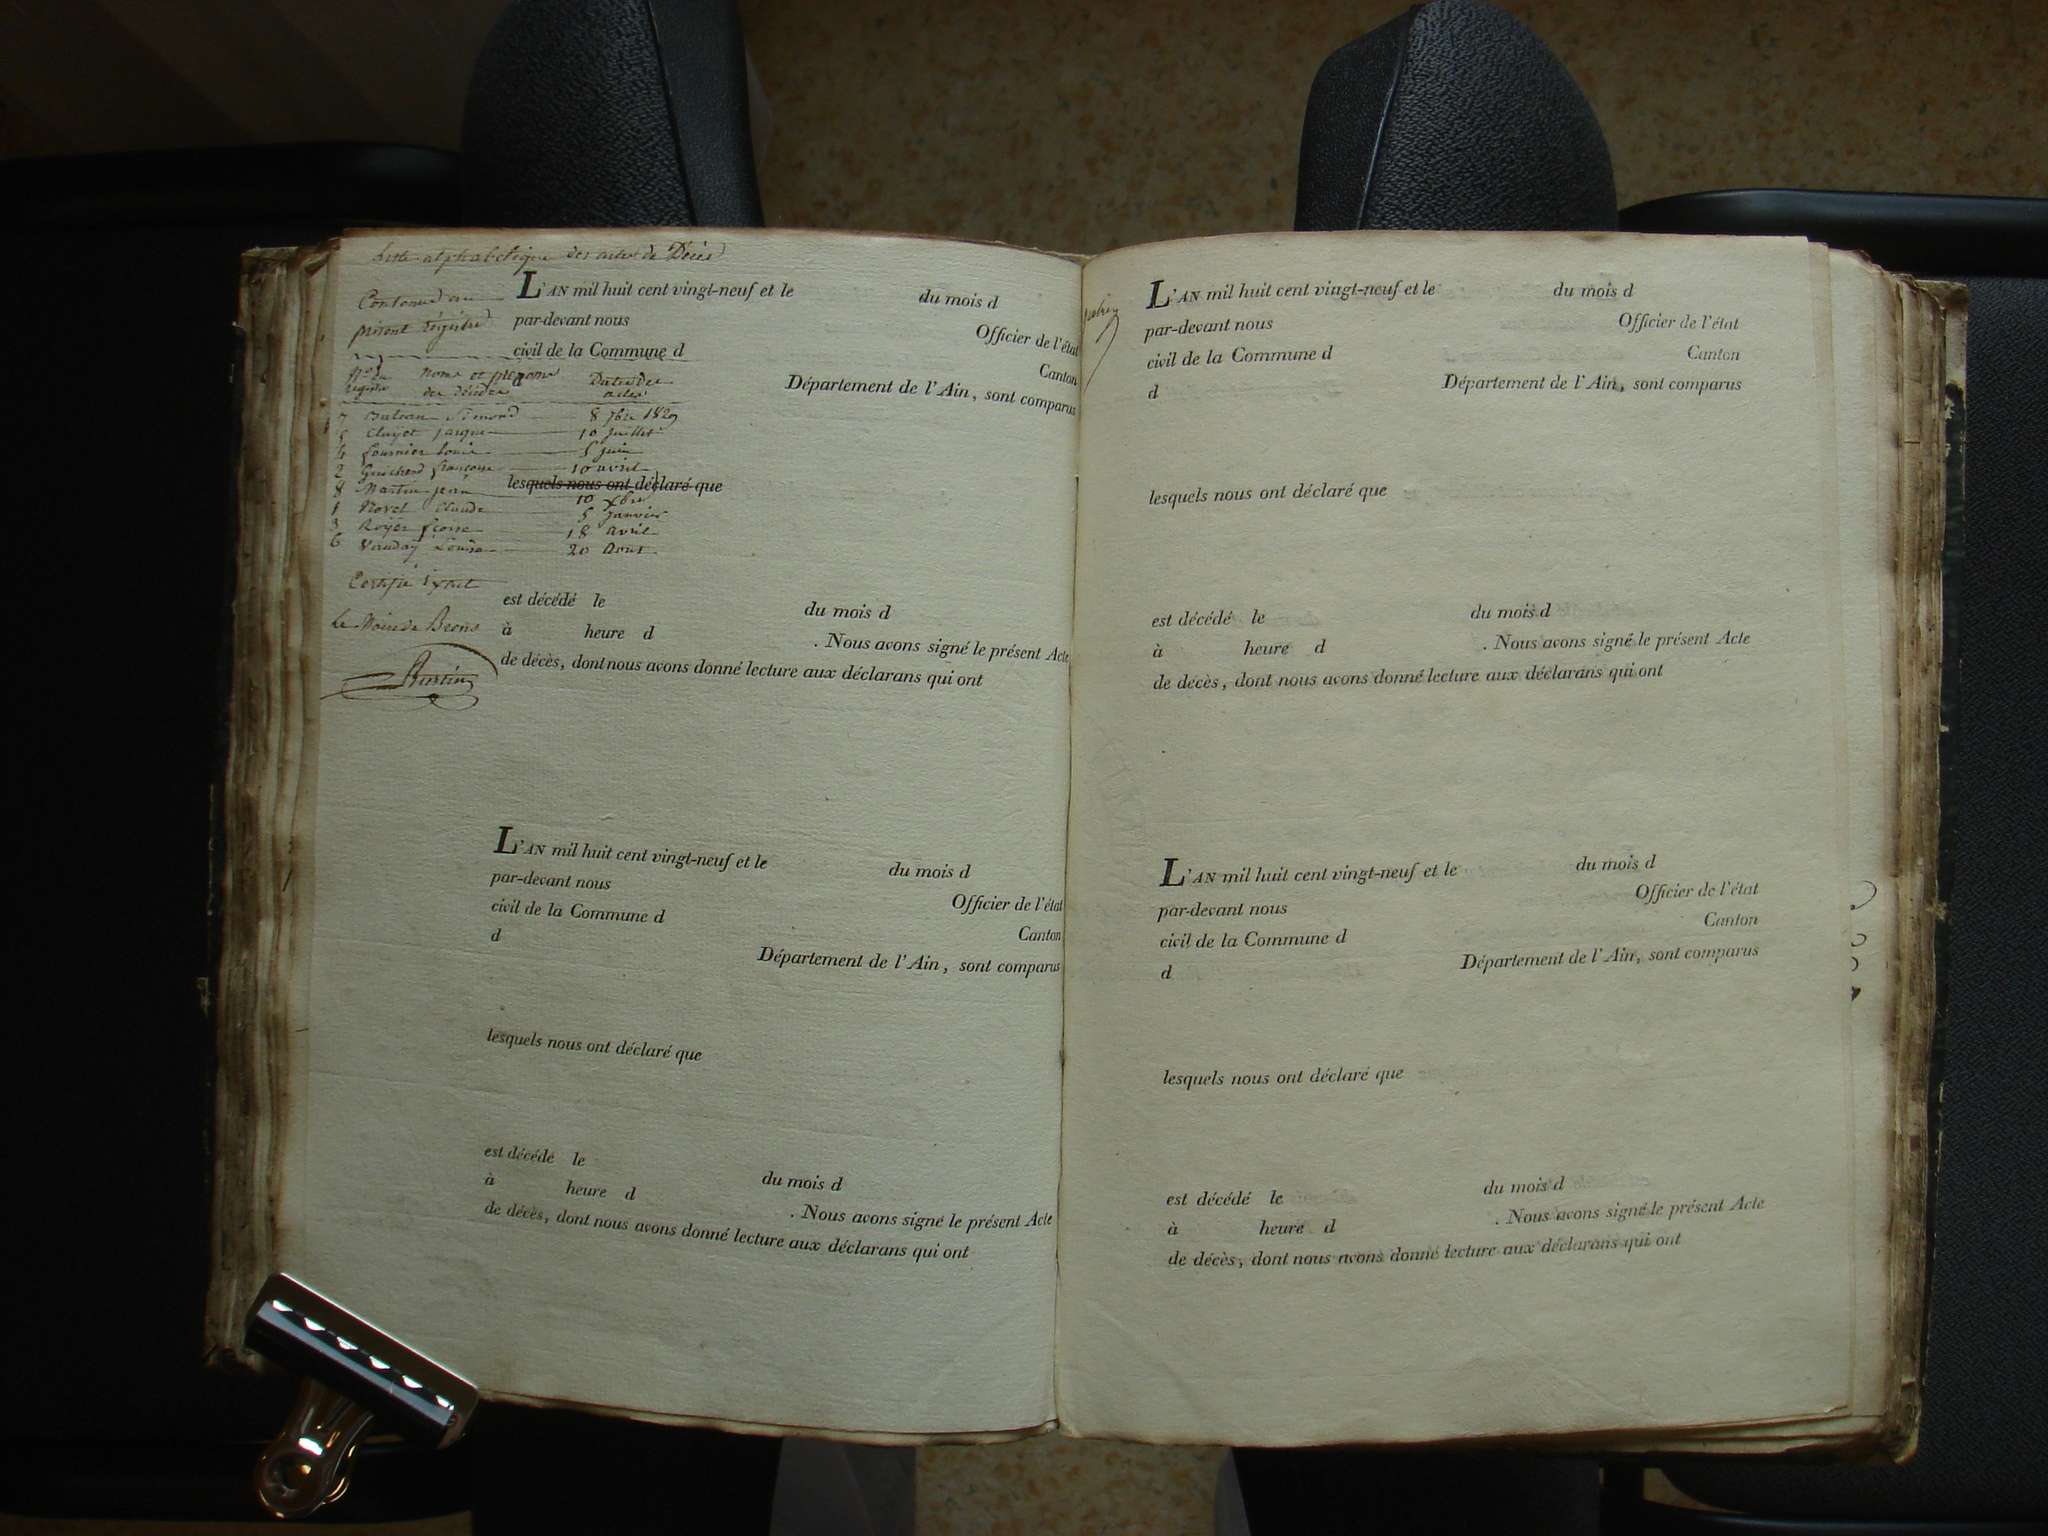 Liste alphabétique des actes de Décès
Contenus au
présent Régistre
Nos du Registre
Noms et prénoms des décédés
Dates des actes
7 Simond 8 7bre 1829
5 Clayet Jacque 10 Juillet
4 fournier Louis 5 juin
2 Guichard françoise 10 avril
8 Martin jean 10 xbre
1 Novel Claude 5 Janvier
3 Royer fcoise 18 avril
6 Vauday Louise 20 Aout
Certifié Extact
Le Maire de Beons
L'AN mil huit cent vingt-neuf et le du mois d
par-devant nous Officier de l'état
civil de la Commune d Canton
Département de l'Ain, sont comparus
lesquels nous ont déclaré que
est décédé le du mois d
à heure d . Nous avons signé le présent Acte
de décès, dont nous avons donné lecture aux déclarans qui ont
L'AN mil huit cent vingt-neuf et le du mois d
par-devant nous Officier de l'état
civil de la Commune d Canton
d Département de l'Ain, sont comparus
lesquels nous ont déclaré que
est décédé le du mois d
à heure d . Nous avons signé le présent Acte
de décès, dont nous avons donné lecture aux déclarans qui ont
L'AN mil huit cent vingt-neuf et le du mois d
par-devant nous Officier de l'état
civil de la Commune d Canton
d Département de l'Ain, sont comparus
lesquels nous ont déclaré que
est décédé le du mois d
à heure d . Nous avons signé le présent Acte
de décès, dont nous avons donné lecture aux déclarans qui ont
L'AN mil huit cent vingt-neuf et le du mois d
par-devant nous Officier de l'état
civil de la Commune d Canton
d Département de l'Ain, sont comparus
lesquels nous ont déclaré que
est décédé le du mois d
à heure d . Nous avons signé le présent Acte
de décès, dont nous avons donné lecture aux déclarans qui ont